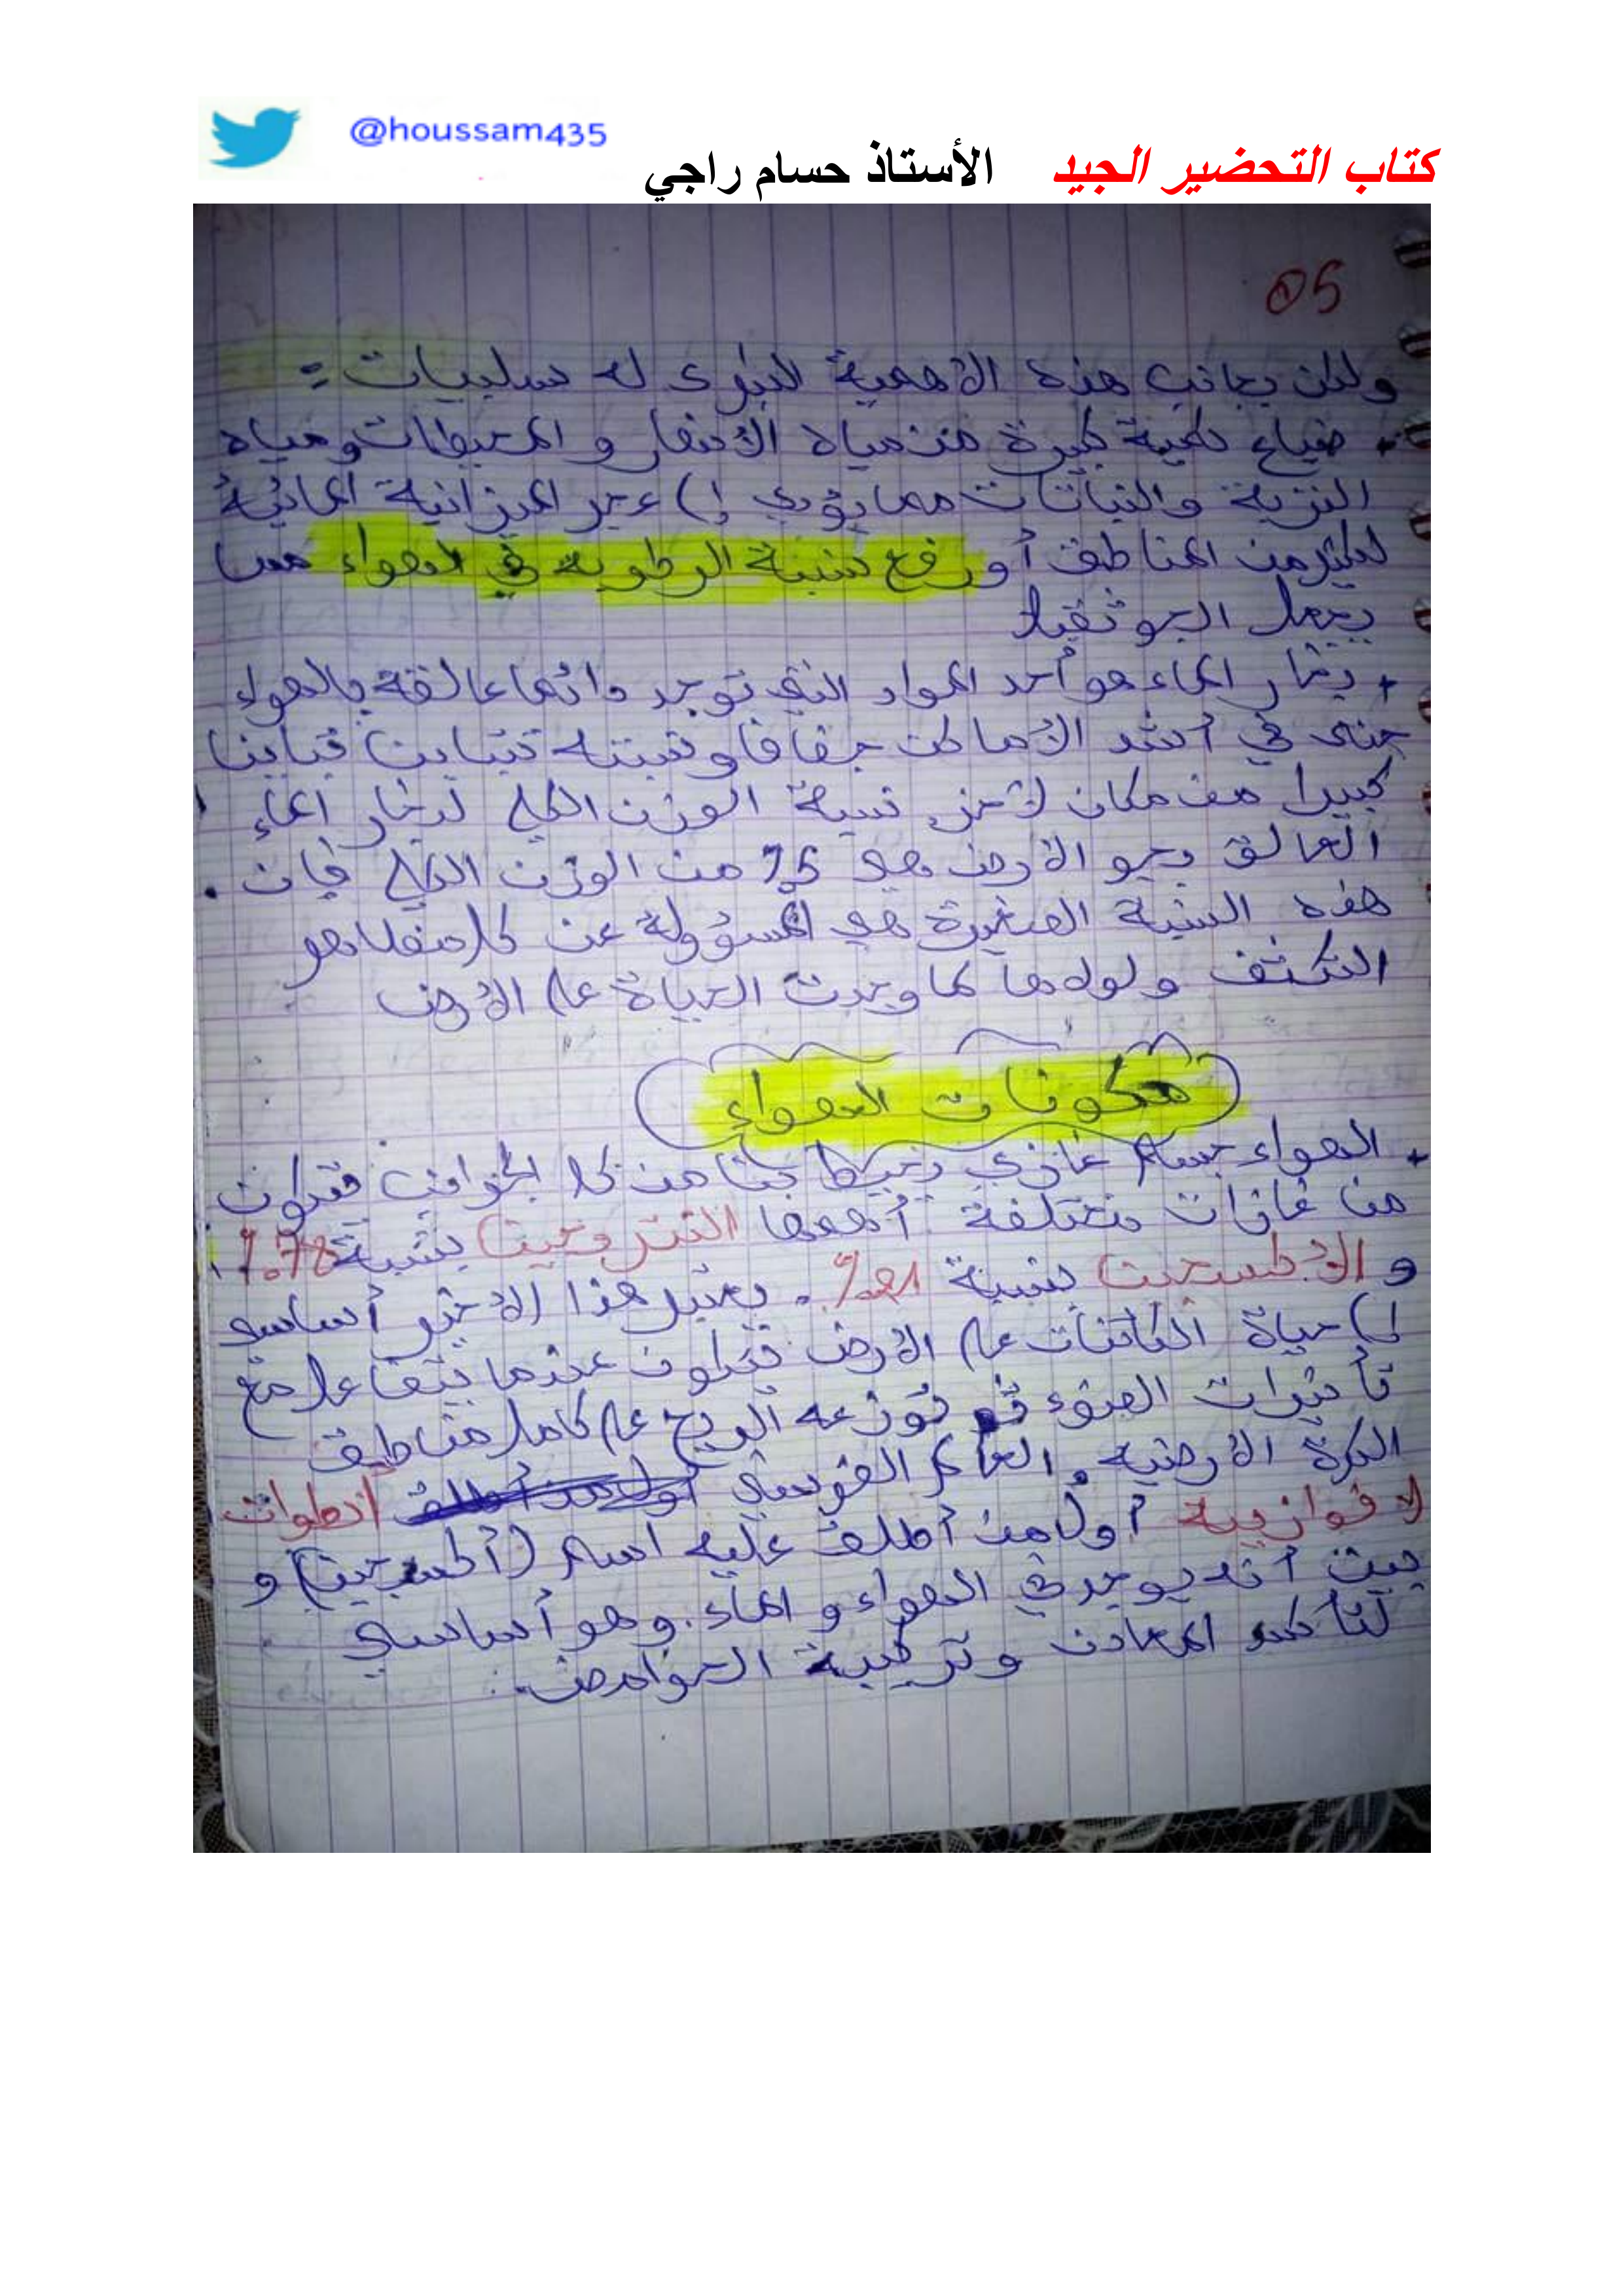 @houssam435
كتاب التحضير الجيد الأستاذ حسام راجي
05
ولكن بجانب هذه الأهمية الكبرى له سلبيات :
+ ضياع كمية كبيرة من مياه الأنهار و المحيطات ومياه
التربة والنباتات مما يؤدي إلى عجز الميزانية المائية
لكثير من المناطق أو رفع نسبة الرطوبة في الهواء مما
يجعل الجو ثقيلا
+ بخار الماء هو أحد المواد التي توجد دائما عالقة بالهواء
حتى في أشد الأماكن جفافا ونسبته تتباين تباينا
كبيرا من مكان لآخر نسبة الوزن الكلي لبخار الماء
العالق بجو الأرض هو من الوزن الكلي فإن
هذه النسبة الصغيرة هي المسؤولة عن كل
التكثف ولولاها لما وجدت الحياة على الأرض
مكونات الهواء
+ الهواء جسم غازي يحيط بنا من كل الجوانب فتكون
من غازات مختلفة أهمها النتروجين بنسبة 78%
و الأكسجين بنسبة 21% . يعتبر هذا الاخير أساسي
لـ حياة الكائنات على الأرض يتكون عندما يتفاعل مع
تأثيرات الضوء توزعه الريح على كامل مناطق
الكرة الأرضية . العالم الفرنسي أنطوان
لافوازييه أول من أطلق عليه اسم (أكسجين) و
بين أنه يوجد في الهواء و الماء . وهو أساسي
لتأكسد المعادن وتركيبة الحوامض .